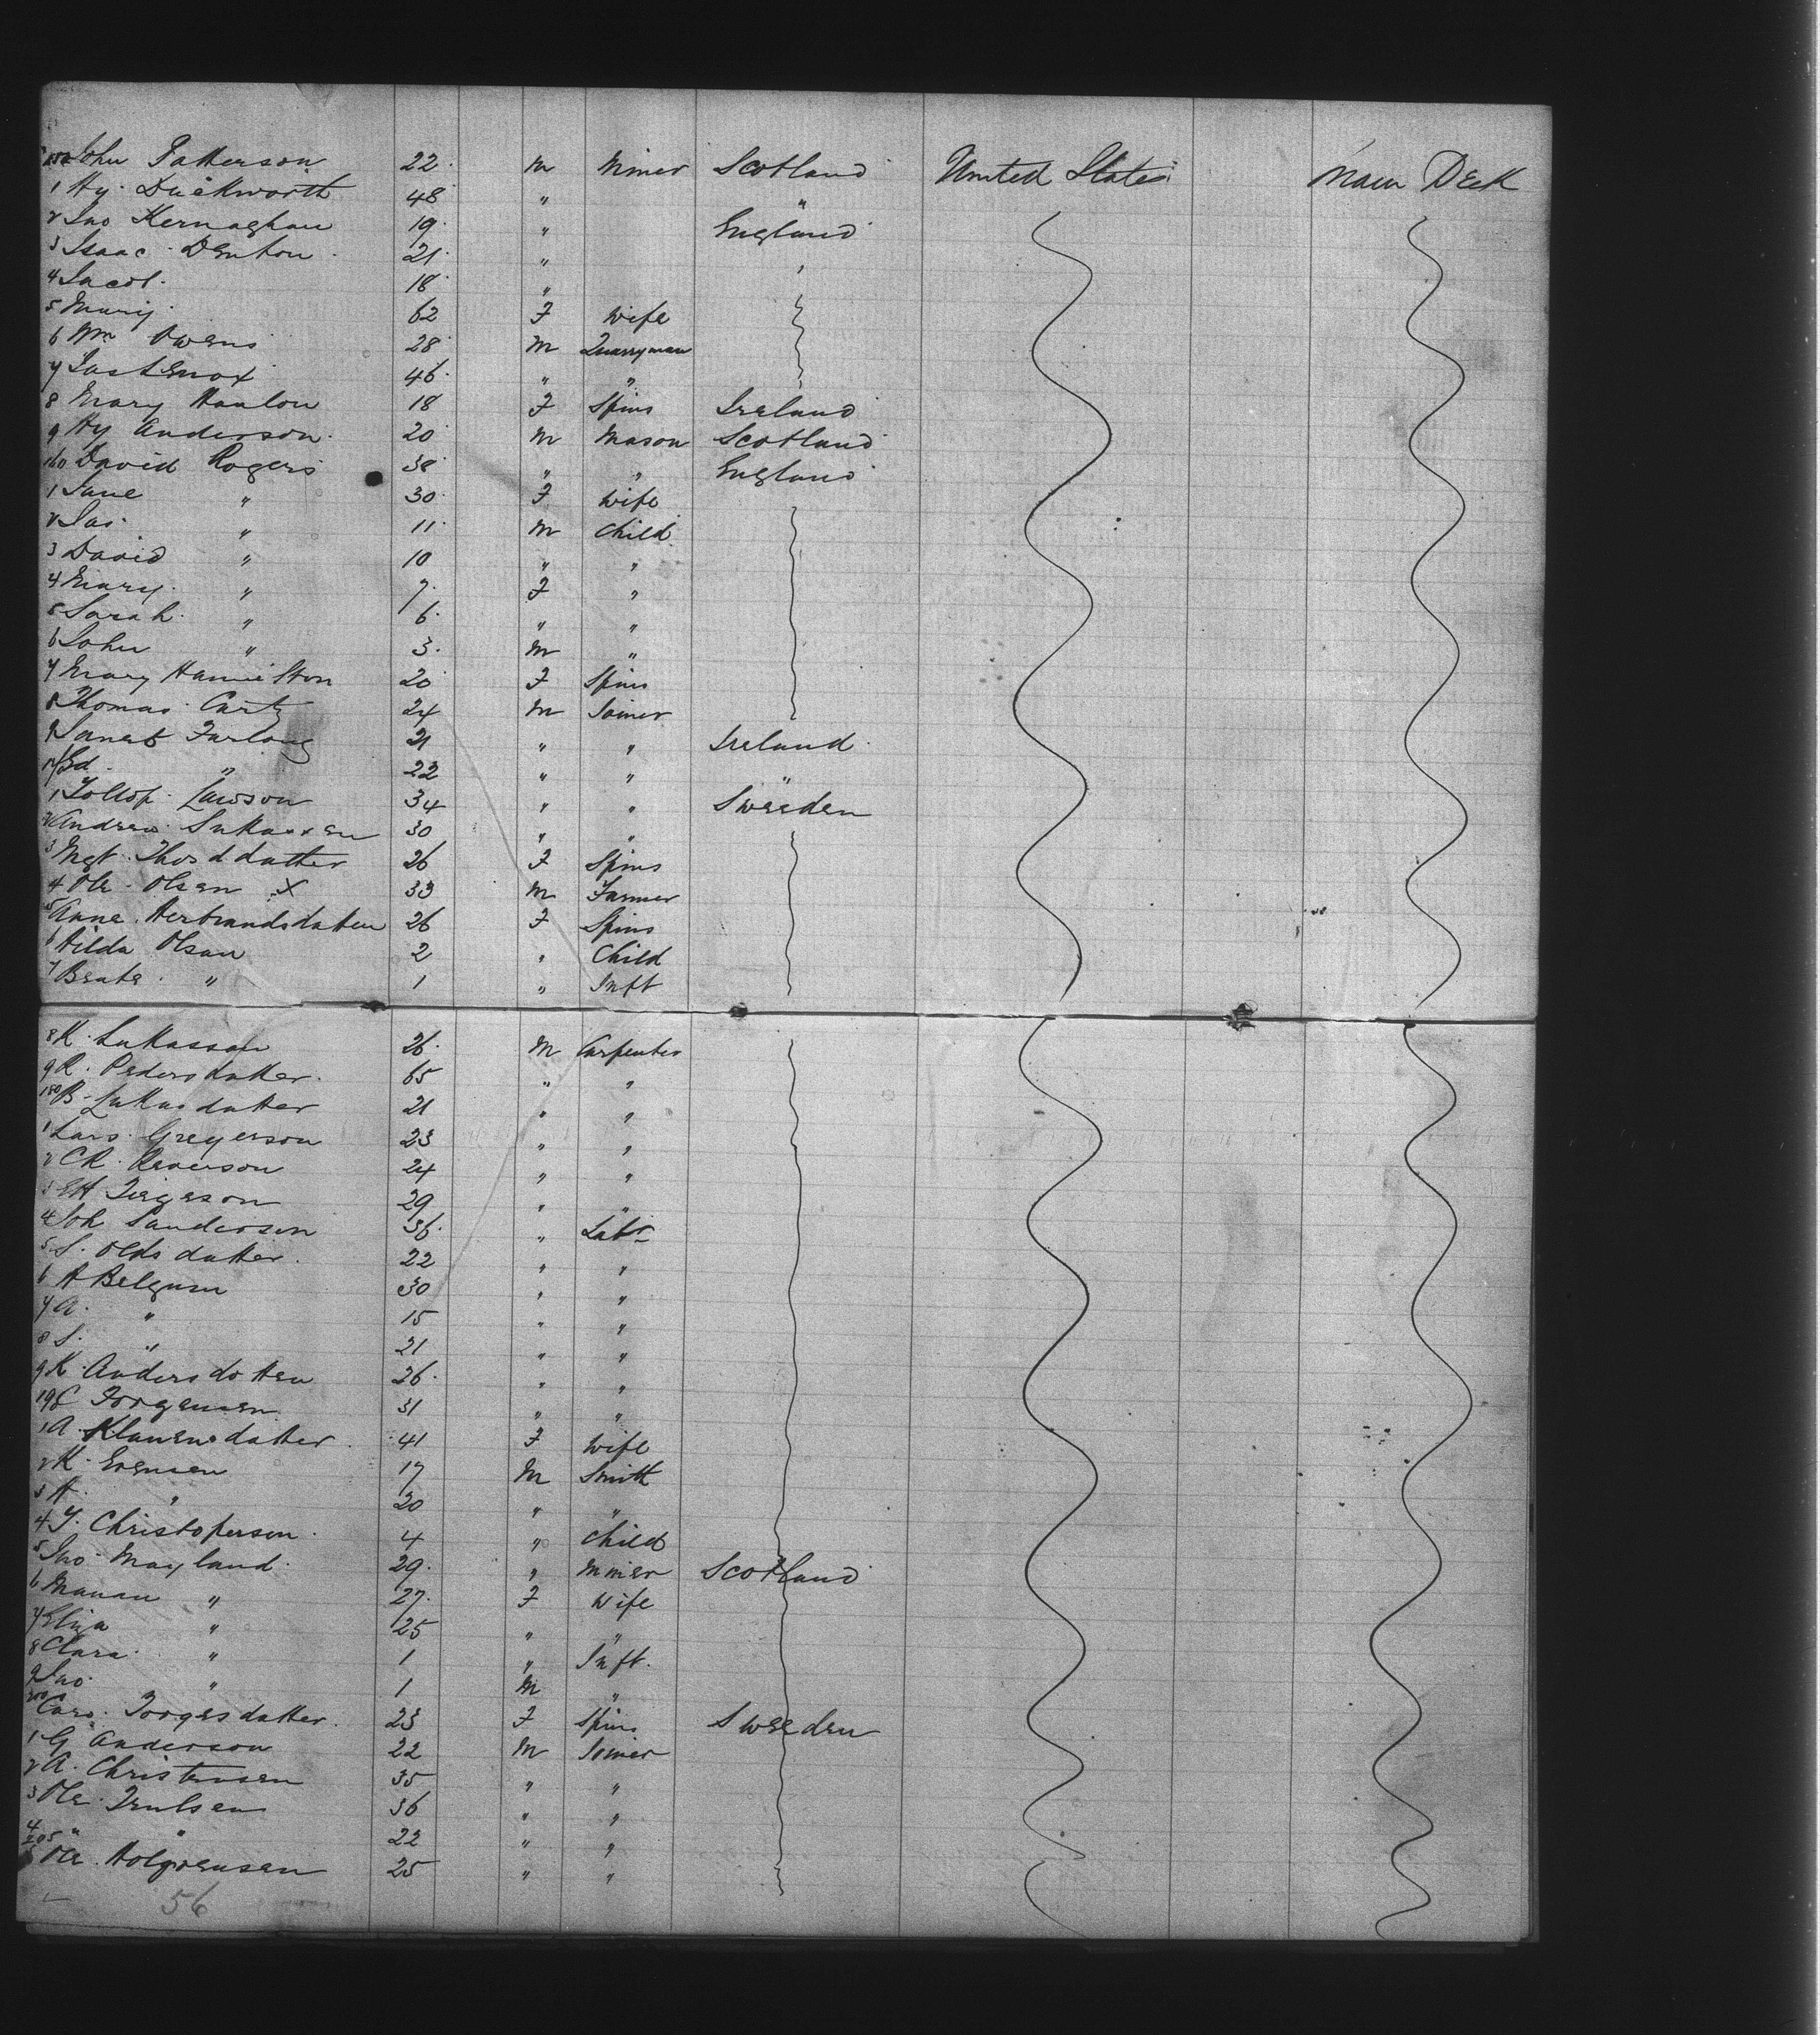 150 John Patterson 22 M Miner Scotland United States Main Deck
1 Hy. Duckworth 48 " "
2 Jno Kernaghan 19 " England
3 Isaac Denton 21 " "
4 Jacob 18 "
5 Mary 62 F Wife
6 Wm Owens 28 M Quarryman
7 Jas 46 " "
8 Mary Hanlon 18 F Spins Ireland
9 Hy Anderson 20 M Mason Scotland
160 David Rogers 38 " " England
1 Jane " 30 F Wife
2 Jas. " 11 M Child
3 David " 10 " "
4 Mary " 7 F "
5 Sarah " 6 " "
6 John " 3 M "
7 Mary Hamilton 20 F Spins
8 Thomas Carty 24 M Joiner
9 Furlong 21 " " Ireland
170 Ed. " 22 " " "
1 Lawson 34 " " Sweeden
2 Andrew 30 " "
3 Mgt. Thorddatter 26 F Spins
4 Ole Olsen X 33 M Farmer
5 Anne Herbrandsdatter 26 F Spins
6 Hilda Olsen 2 " Child
7 Beate " 1 " Inft
8 K. Lukassen 26 M Carpenter
9 R. Pedersdatter 65 " "
180 B. Lukasdatter 21 " "
1 Lars Gregerson 23 " "
2 CR. 24 " "
3 EH 29 " "
4 Joh Sanderson 36 " Labr
5 S. Olsdatter 22 " "
6 A Belgum 30 " "
7 A. " 15 " "
8 S. " 21 " "
9 K. Andersdatter 26 " "
190 Jorgensen 31 " "
1 A. Klausensdatter 41 F Wife
2 K. Evensen 17 M Smith
3 H. " 20 " "
4 T. Christoferson 4 " Child
5 Jno. Mayland 29 " Miner Scotland
6 " 27 F Wife
7 Eliza " 25 " "
8 Clara " 1 " Inft.
9 Jno. " 1 M "
200 Caro. Torgesdatter 23 F Spins Sweeden
1 G. Anderson 22 M Joiner
2 A. Christensen 35 " "
3 Ole Trulsen 36 " "
4 " " 22 " "
205 Ole 25 " "
56